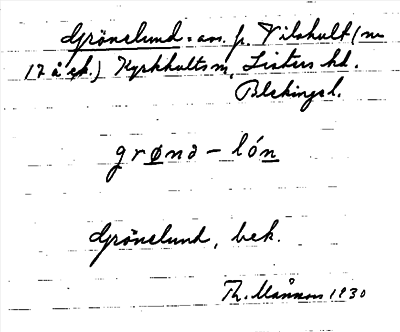 Grönelund. av. f. Vilshult (nu
17 å ek.) Kyrkhults sn, Listers hd.
Blekinge l.
grønd – lón
Grönelund, bek.
Th. Månsson 1930